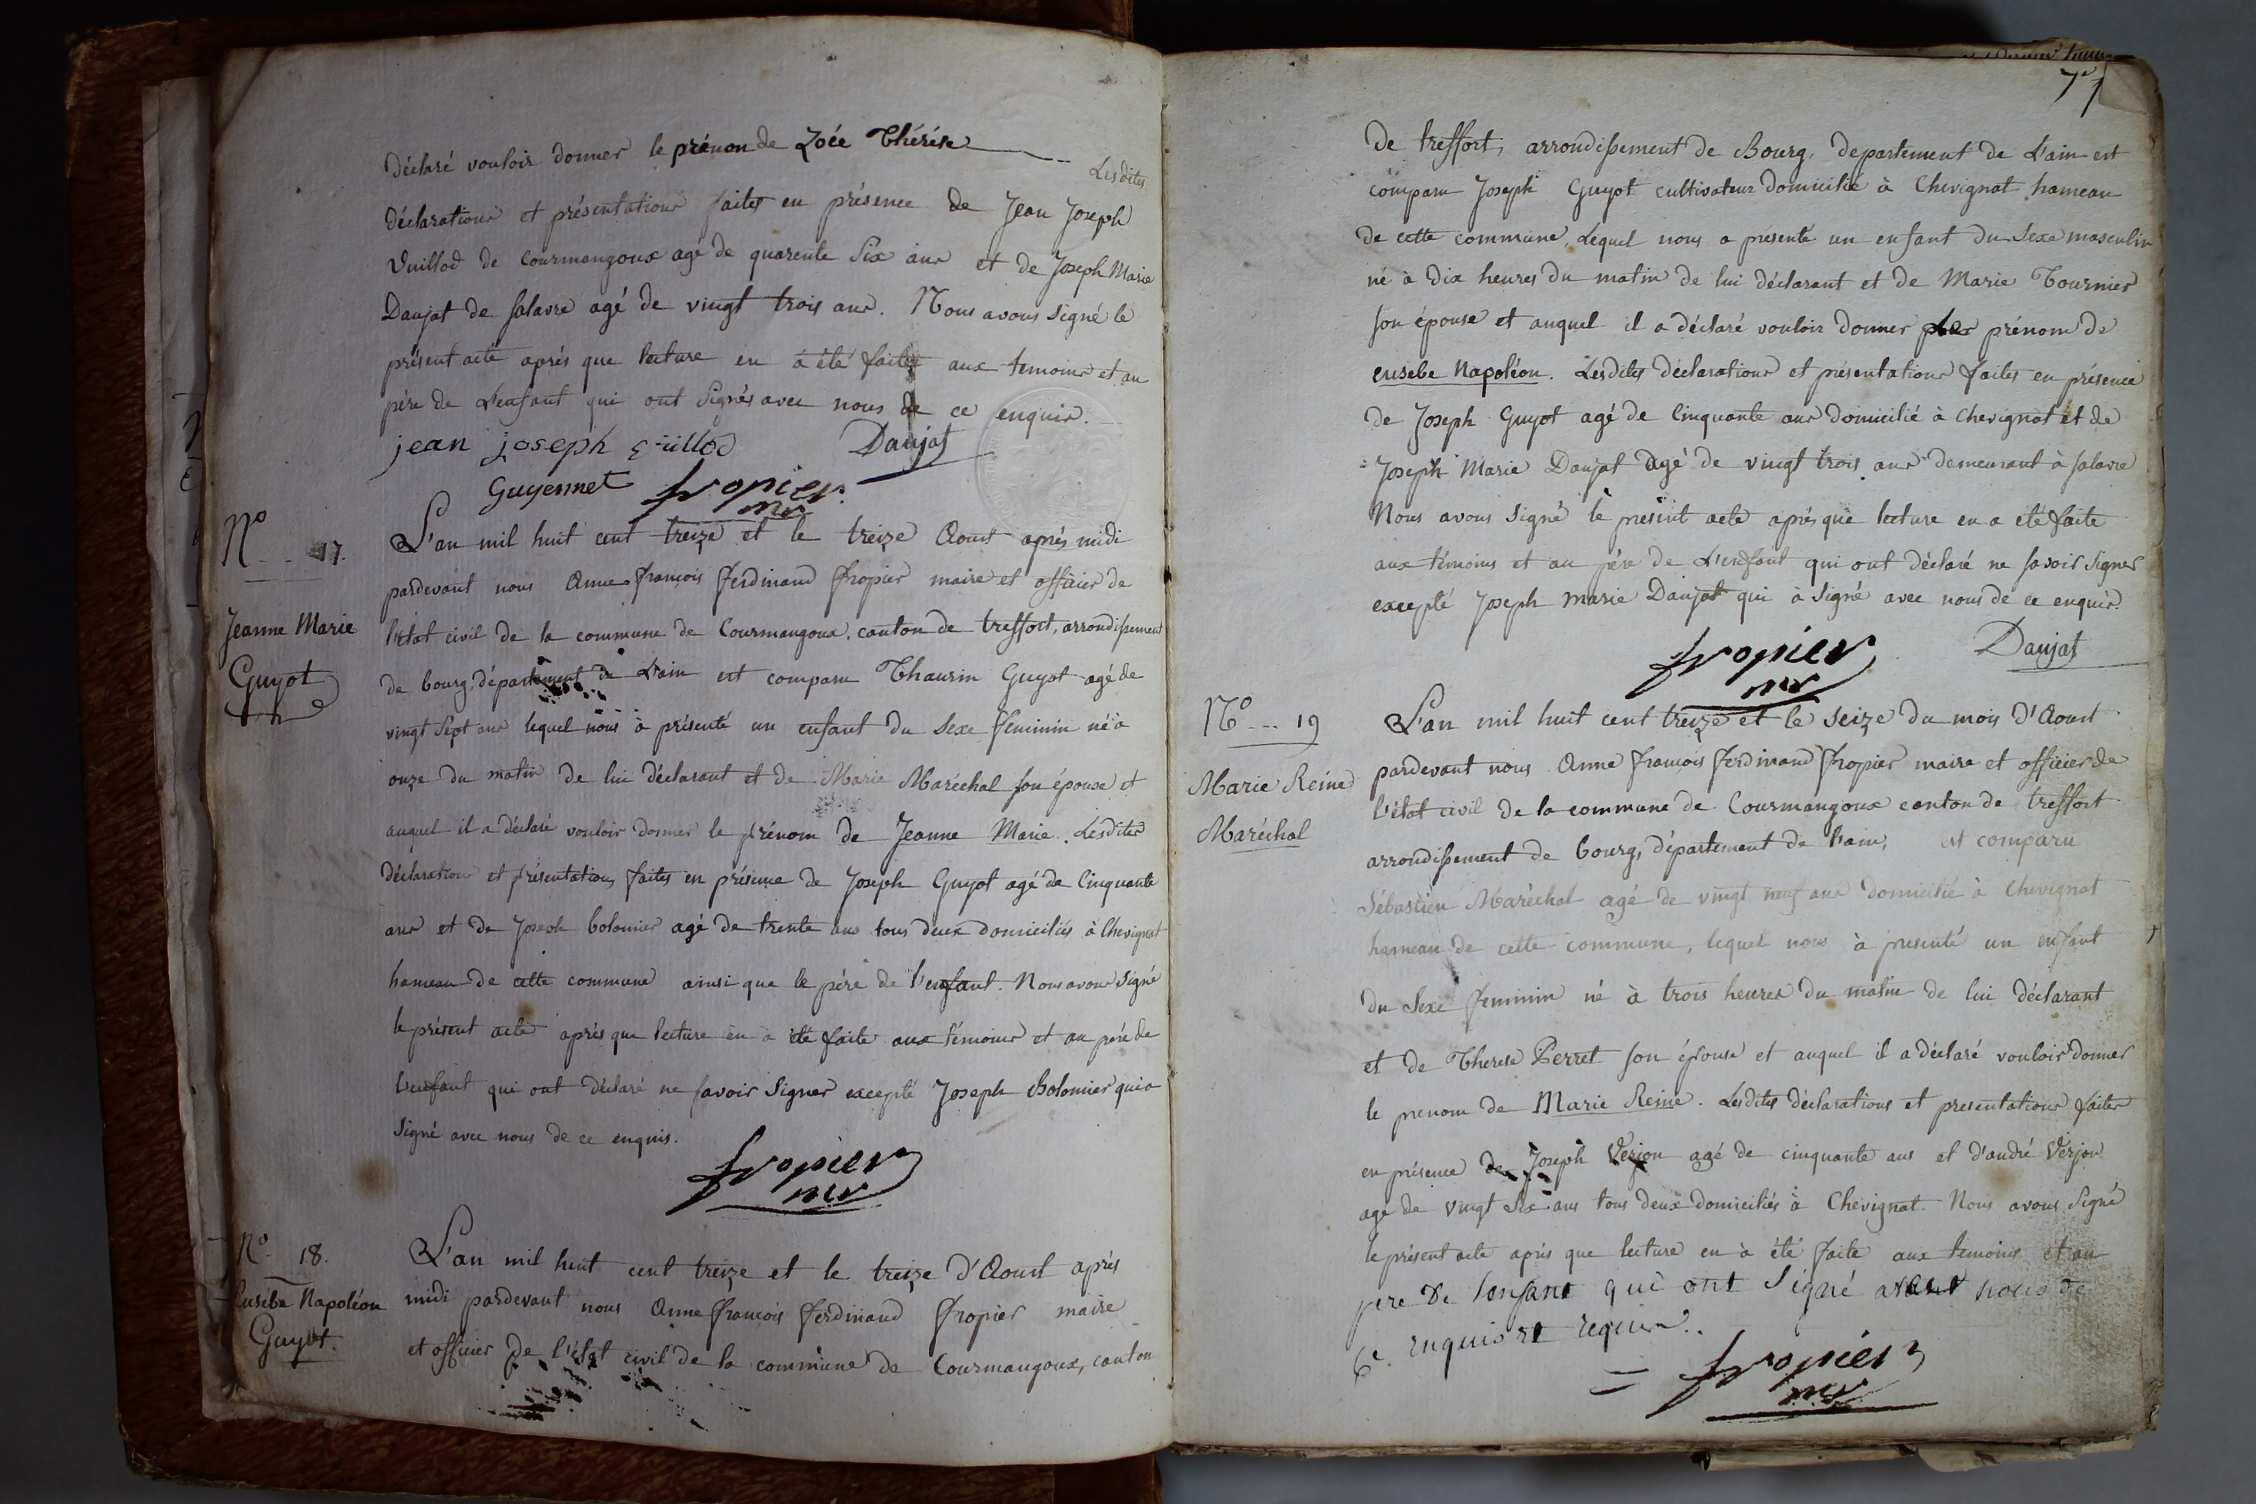 déclaré vouloir donner le prénom de Zoée Thérèse
Lesdites
déclarations et présentations faites en présence de Jean Joseph
Vuillod de Courmangoux agé de quarente six ans et de Joseph Marie
Daujat de salavre agé de vingt trois ans. Nous avons signé le
présent acte après que lecture en a été faite aux temoins et au
père de L'enfant qui ont signés avec nous de ce enquis.
jean joseph vuillod Daujat
Guyennet fropier
mre
No 17.
Jeanne Marie
Guyot
L'an mil huit cent treize et le treize Aoust après midi
pardevant nous Anne françois ferdinand fropier maire et officier de
l'état civil de la commune de Courmangoux, canton de treffort, arrondissement
de bourg, département de L'ain est comparu Thaurin Guyot agé de
vingt sept ans lequel nous à présenté un enfant du sexe feminin né à
onze du matin de lui déclarant et de Marie Maréchal son épouse et
auquel il a déclaré vouloir donner le prénom de Jeanne Marie. Lesdites
déclarations et présentations faites en présence de Joseph Guyot agé de Cinquante
ans et de Joseph bolomier agé de trente ans tous deux domiciliés à Chevignat
hameau de cette commune ainsi que le père de l'enfant. Nous avons signé
le présent acte après que lecture en a été faite aux témoins et au père de
l'enfant qui ont déclaré ne savoir signer excepté Joseph Bolomier qui a
signé avec nous de ce enquis.
fropier
mre
No 18.
Eusebe Napoléon
Guyot.
L'an mil huit cent treize et le treize d'Aoust après
midi pardevant nous Anne françois ferdinand fropier maire
et officier de l'état civil de la commune de Courmangoux, canton
77
De treffort, arrondissement de Bourg, departement de L'ain est
comparu Joseph Guyot cultivateur domicilié à Chevignat hameau
de cette commune, Lequel nous a présenté un enfant du sexe masculin
né à dix heures du matin de lui déclarant et de Marie Tournier
son épouse et auquel il a déclaré vouloir donner prénom de
eusebe Napoléon. Lesdites déclarations et présentations faites en présence
de Joseph Guyot agé de Cinquante ans domicilié à Chevignat et de
Joseph Marie Daujat agé de vingt trois ans demeurant à salavre
Nous avons signé le present acte après que lecture en a été faite
aux témoins et au père de L'enfant qui ont déclaré ne savoir signer
excepté Joseph marie Daujat qui à signé avec nous de ce enquis.
fropier Daujat
mre
No 19
Marie Reine
Maréchal
L'an mil huit cent treize et le seize du mois d'Aoust
pardevant nous Anne françois ferdinand fropier maire et officier de
l'état civil de la commune de Courmangoux canton de treffort
arrondissement de bourg, département de l'ain, est comparu
Sébastien Maréchal agé de vingt neuf ans domicilié à Chevignat
hameau de cette commune, lequel nous à presenté un enfant
du sexe feminin né à trois heures du matin de lui déclarant
et de Therese Perret son épouse et auquel il a déclaré vouloir donner
le prenom de Marie Reine. Lesdites déclarations et presentations faites
en présence de Joseph Verjon agé de cinquante ans et d'andré Verjon
agé de vingt six ans tous deux domiciliés à Chevignat. Nous avons signé
le présent acte après que lecture en à été faite aux temoins et au
pere de lenfant qui ont signé avec nous de
ce enquis et requis.
fropier
mre